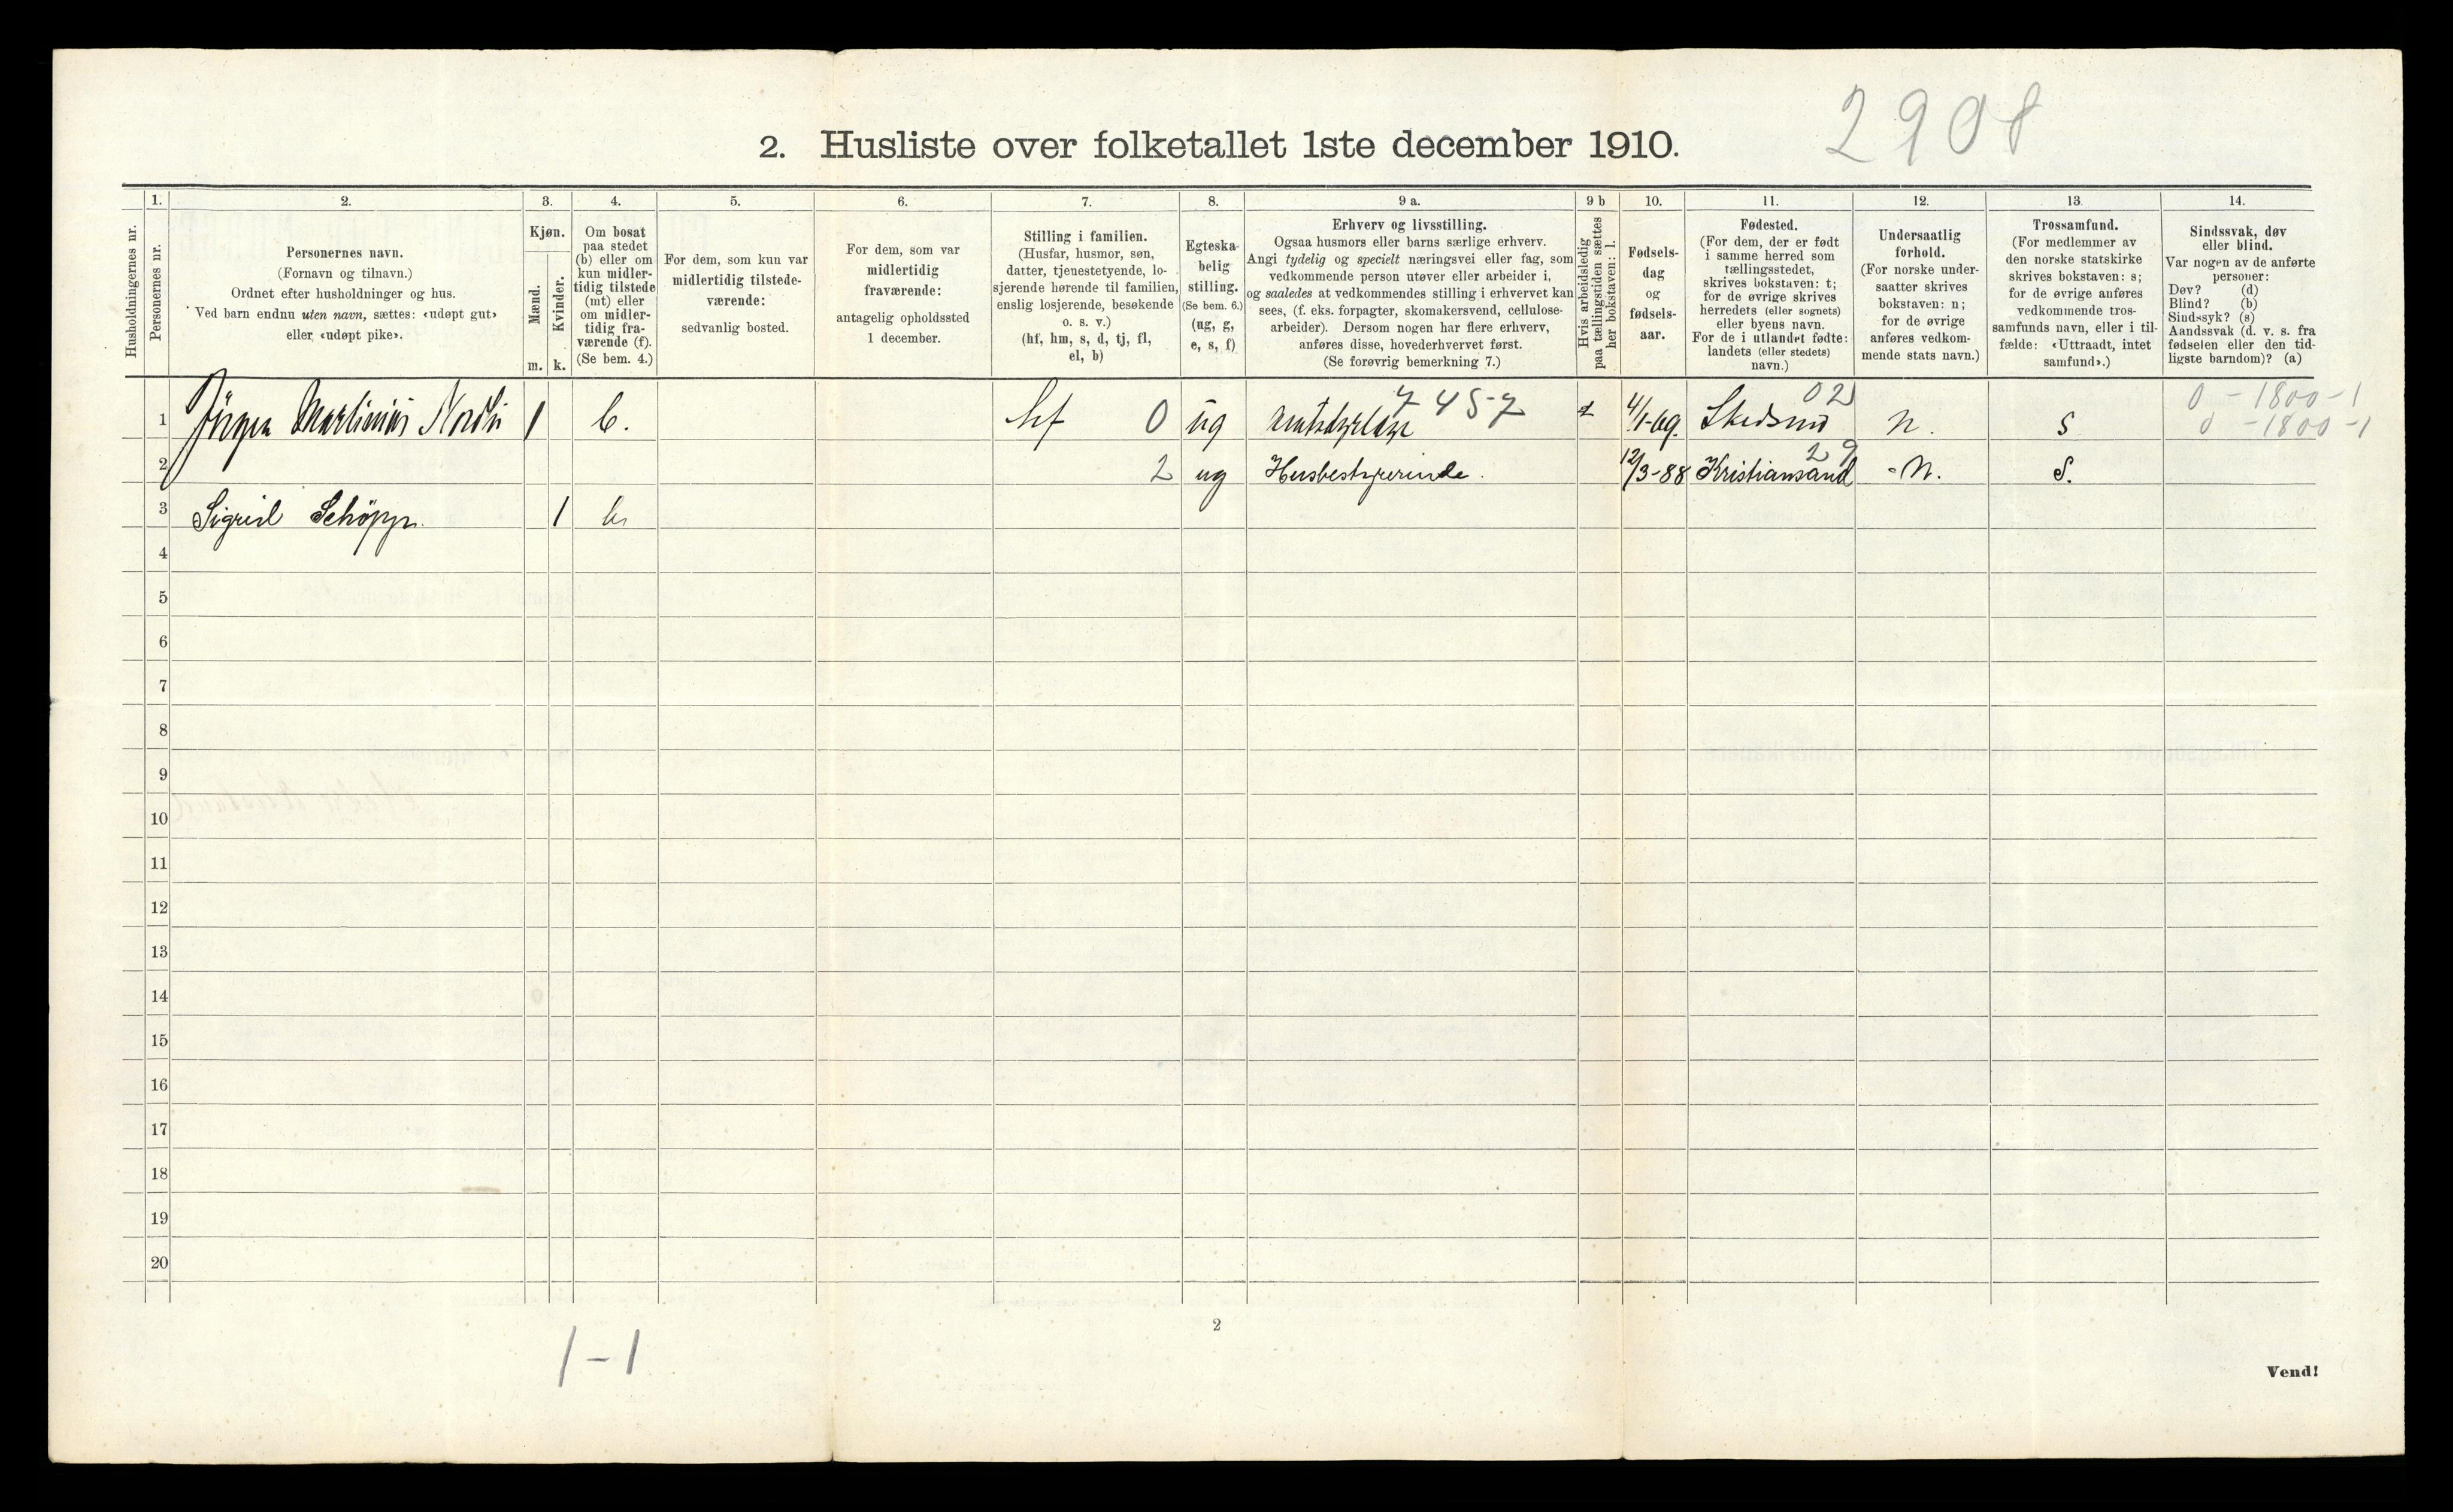 2908
2. Husliste over folketallet 1ste december 1910.
Husholdningernes nr.
1.
Personernes nr.
2.
Personernes navn.
(Fornavn og tilnavn.)
Ordnet efter husholdninger og hus.
Ved barn endnu uten navn, sættes: «udøpt gut»
eller «udøpt pike».
3.
Kjøn.
Mænd.
Kvinder.
m. k.
4.
Om bosat
paa stedet
(b) eller om
kun midler-
tidig tilstede
(mt) eller
om midler-
tidig fra-
værende (f).
(Se bem. 4.)
5.
For dem, som kun var
midlertidig tilstede-
værende:
sedvanlig bosted.
6.
For dem, som var
midlertidig
fraværende:
antagelig opholdssted
1 december.
7.
Stilling i familien.
(Husfar, husmor, søn,
datter, tjenestetyende, lo-
sjerende hørende til familien,
enslig losjerende, besøkende
o. s. v.)
(hf, hm, s, d, tj, fl,
el, b)
8.
Egteska-
belig
stilling.
(Se bem. 6.)
(ug, g,
e, s, f)
9 a.
Erhverv og livsstilling.
Ogsaa husmors eller barns særlige erhverv.
Angi tydelig og specielt næringsvei eller fag, som
vedkommende person utøver eller arbeider i,
og saaledes at vedkommendes stilling i erhvervet kan
sees, (f. eks. forpagter, skomakersvend, cellulose-
arbeider). Dersom nogen har flere erhverv,
anføres disse, hovederhvervet først.
(Se forøvrig bemerkning 7.)
9 b
Hvis arbeidsledig
paa tællingstiden sættes
her bokstaven: l.
10.
Fødsels-
dag
og
fødsels-
aar.
11.
Fødested.
(For dem, der er født
i samme herred som
tællingsstedet,
skrives bokstaven: t;
for de øvrige skrives
herredets (eller sognets)
eller byens navn.
For de i utlandet fødte:
landets (eller stedets)
navn.)
12.
Undersaatlig
forhold.
(For norske under-
saatter skrives
bokstaven: n;
for de øvrige
anføres vedkom-
mende stats navn.)
13.
Trossamfund.
(For medlemmer av
den norske statskirke
skrives bokstaven: s;
for de øvrige anføres
vedkommende tros-
samfunds navn, eller i til-
fælde: «Uttraadt, intet
samfund».)
14.
Sindssvak, døv
eller blind.
Var nogen av de anførte
personer:
Døv? (d)
Blind? (b)
Sindssyk? (s)
Aandssvak (d. v. s. fra
fødselen eller den tid-
ligste barndom)? (a)
02 0 - 1800 - 1
7457
1 Jörgen Martinius 1 b. hf 0 ug 4/1-69. Skedsmo n. s 0 - 1800 - 1
29
2 2 ug Husbestyrerinde. 12/3-88 Kristiansand N. S.
3 Sigrid Schöpp. 1 b
4
5
6
7
8
9
10
11
12
13
14
15
16
17
18
19
20
1 - 1
2
Vend!